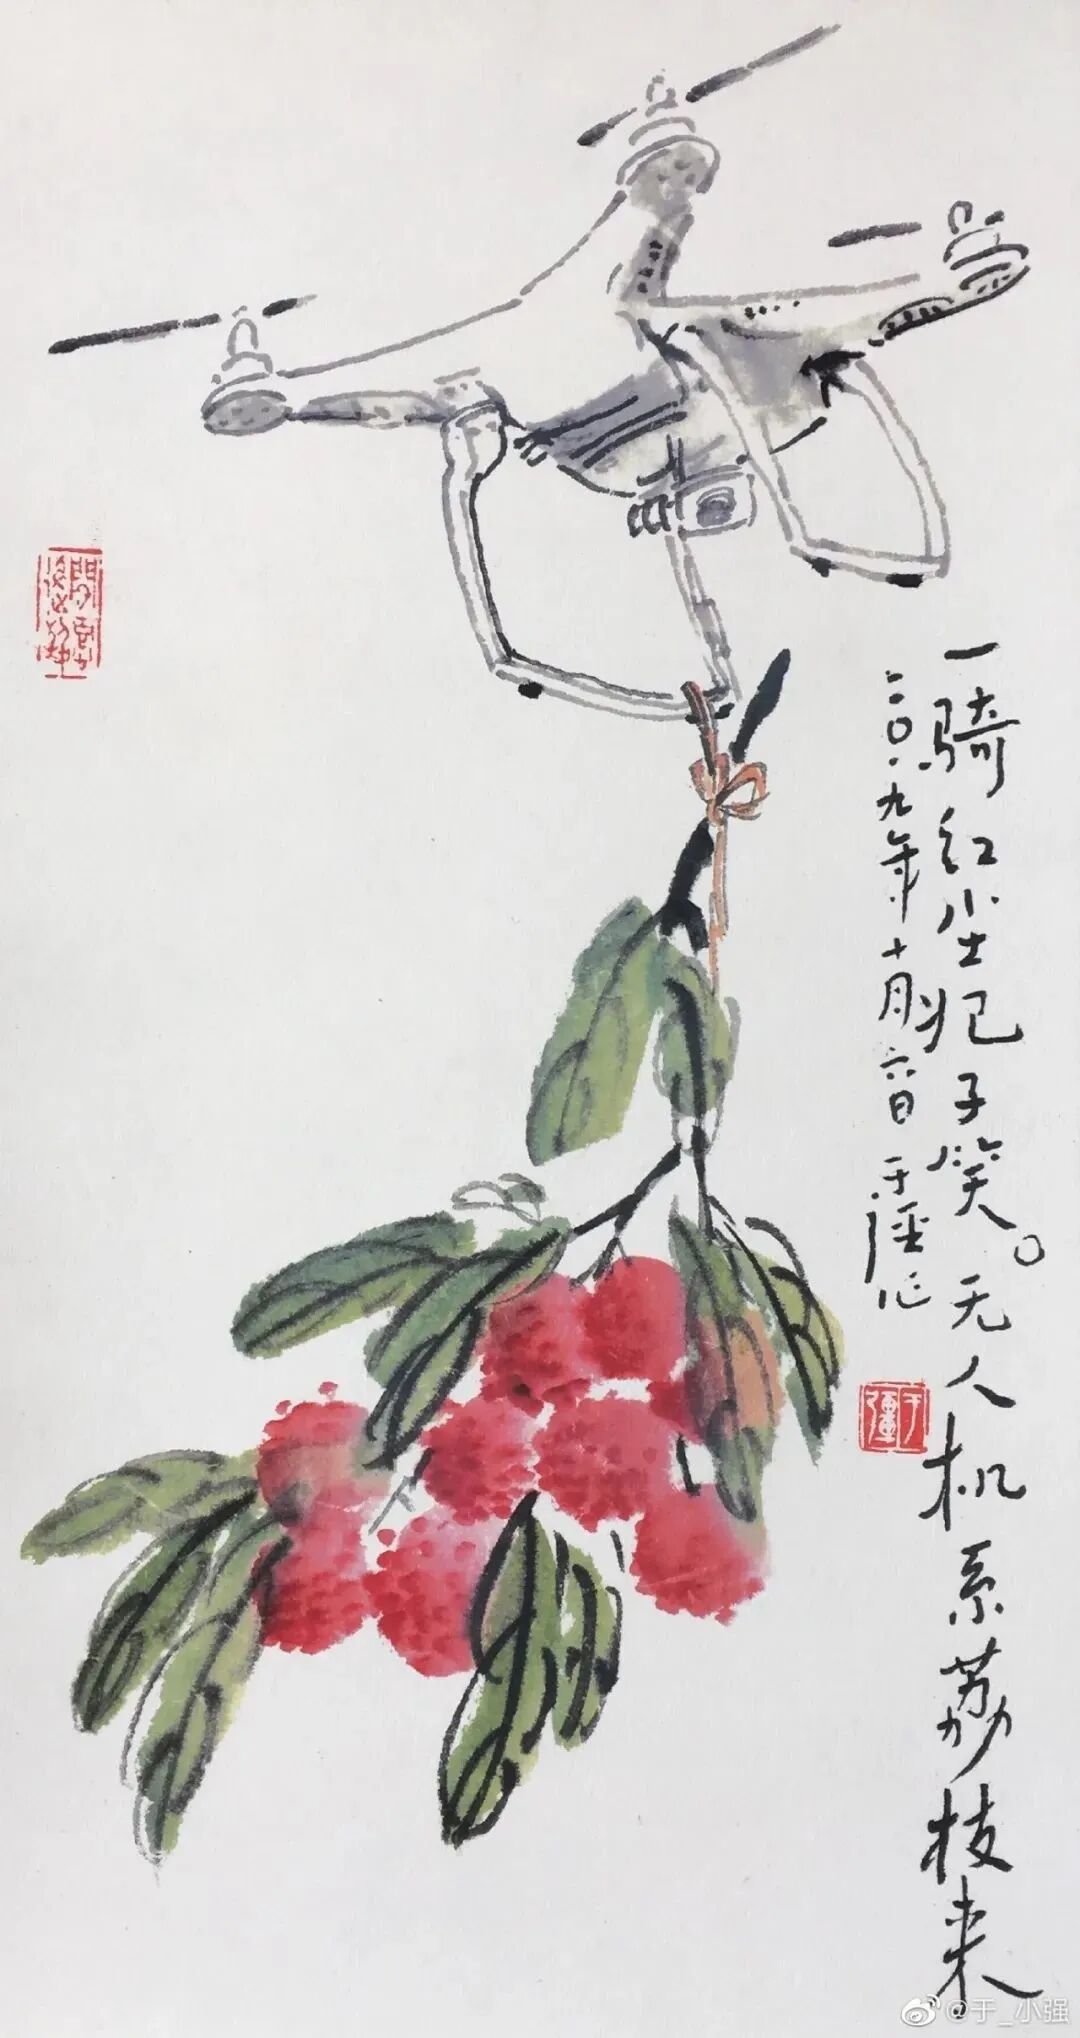 一骑红尘妃子笑。无人机系荔枝来
二〇一九年十月六日 于强作
于强
@于_小强